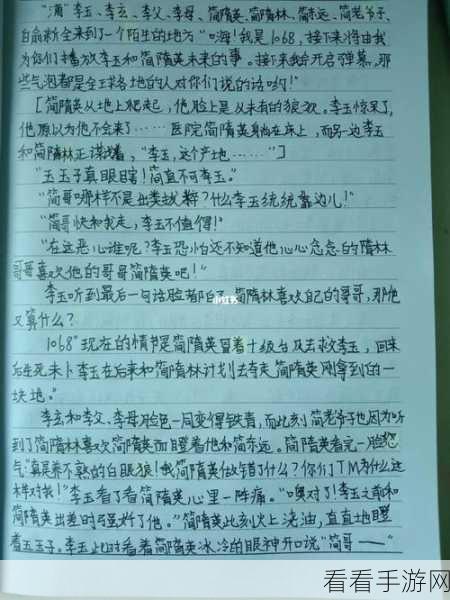 "滴"李玉、李玄、李父、李母、简隋英、简隋林、简东远、简老爷子、
白新羽全来到了一个陌生的地方"嗨!我是1068,接下来将由我
为你们播放李玉和简隋英未来的事。接下来我会开启弹幕,那
些气泡都是全球各地的人对你们说的话哟!"
[简隋英从地上爬起,他脸上是从未有的狼狈。李玉惊呆了,
他原以为他不会来了……医院简隋英躺在床上,而另一边李玉
和简隋林正谋划着,"李玉,这个产地……"]
"玉玉子真眼瞎!简直不可李玉。"
"简哥哪样不是出类拔粹?什么李玉统统靠边儿!"
"简哥快和我走,李玉不值得!"
"在这恶心谁呢?李玉恐怕还不知道他心心念念的隋林
哥哥喜欢他的哥哥简隋英吧!"
李玉听到最后一句话脸都白了,简隋林喜欢自己的哥哥,那他
又算什么?
小红书
1068"现在的情节是简隋英冒着十级台风去救李玉,回来
后生死未卜李玉在后来和简隋林计划去夺走简隋英刚拿到的一
块地。"
李玄和李父、李母脸色一同变得铁青,而此刻简老爷子也因为听
到了简隋林喜欢简隋英而瞪着他和简东远。简隋英看完一脸怒
气"真是养不熟的白眼狼!我简隋英做错了什么?你们TM为什么这
样对我!"李玉看了看简隋英心里一阵痛。"噢对了!李玉之前和
简隋英出差时强奸了他。"简隋英此刻火上浇油,直直地瞪
着玉玉子。李玉此时看着简隋英冰冷的眼神开口说"简哥——"
看看手游网